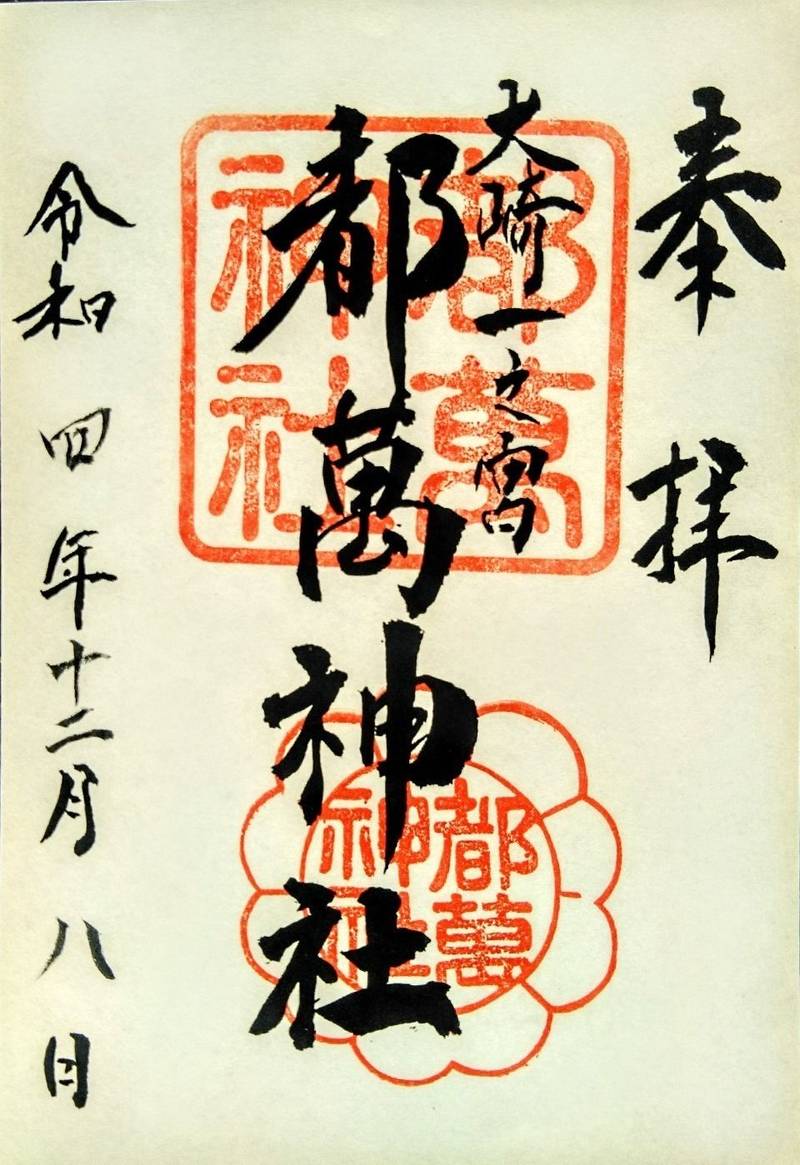 奉拝
大崎一之宮
都萬神社
都萬神社
都萬神社
令和四年十二月八日